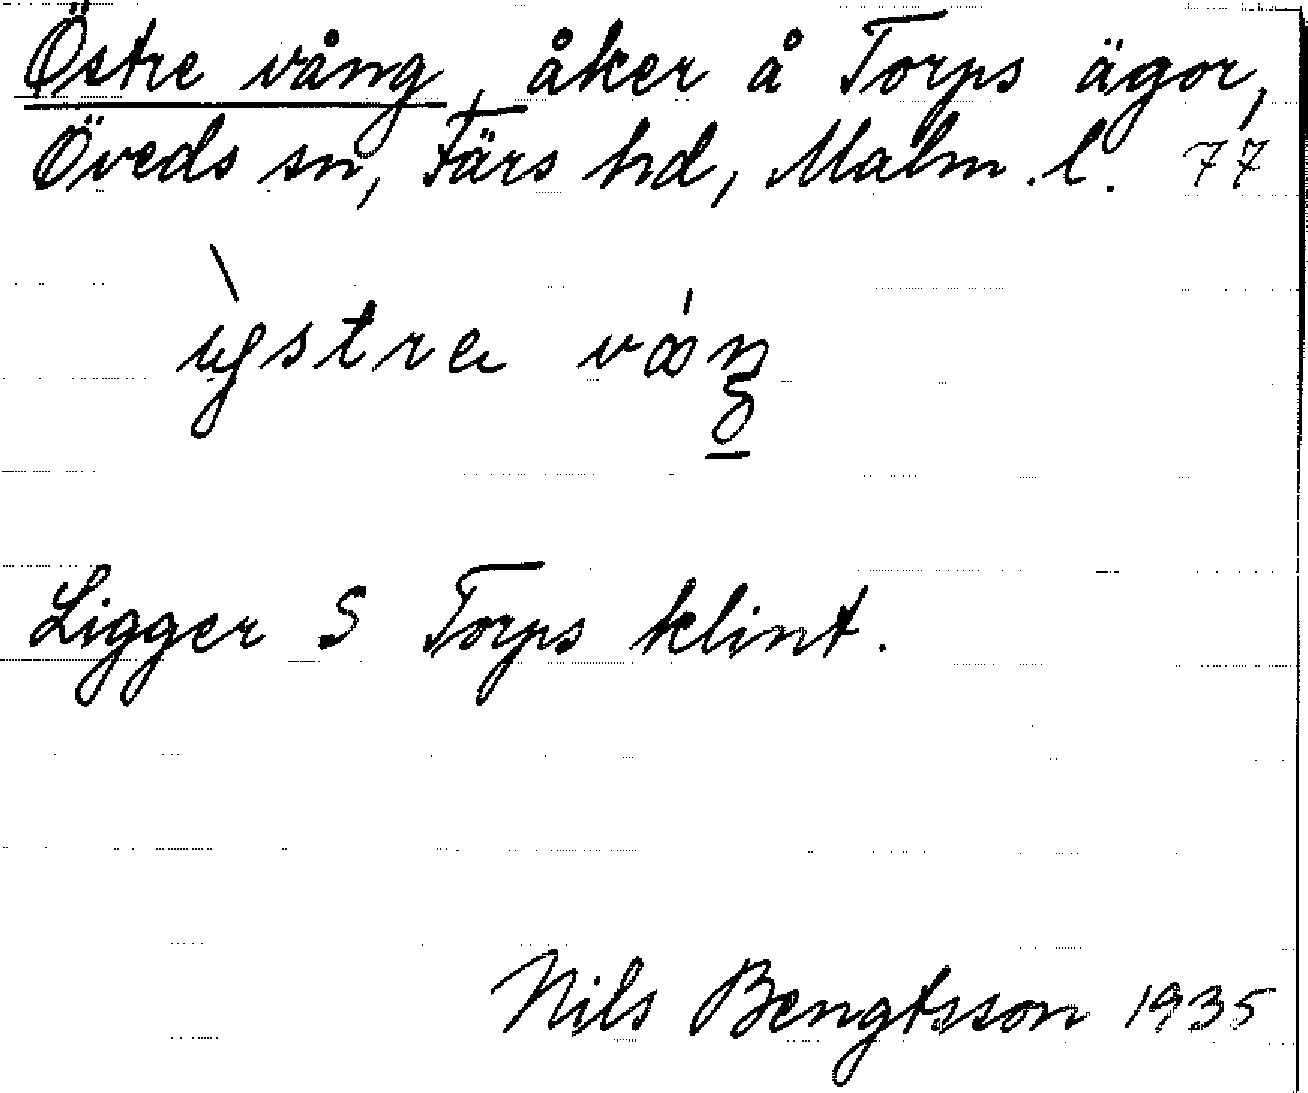 Östre vång, åker å Torps ägor,
Öveds sn, Färs hd, Malm. l. 77
Ligger S Torps klint.
Nils Bengtsson 1935